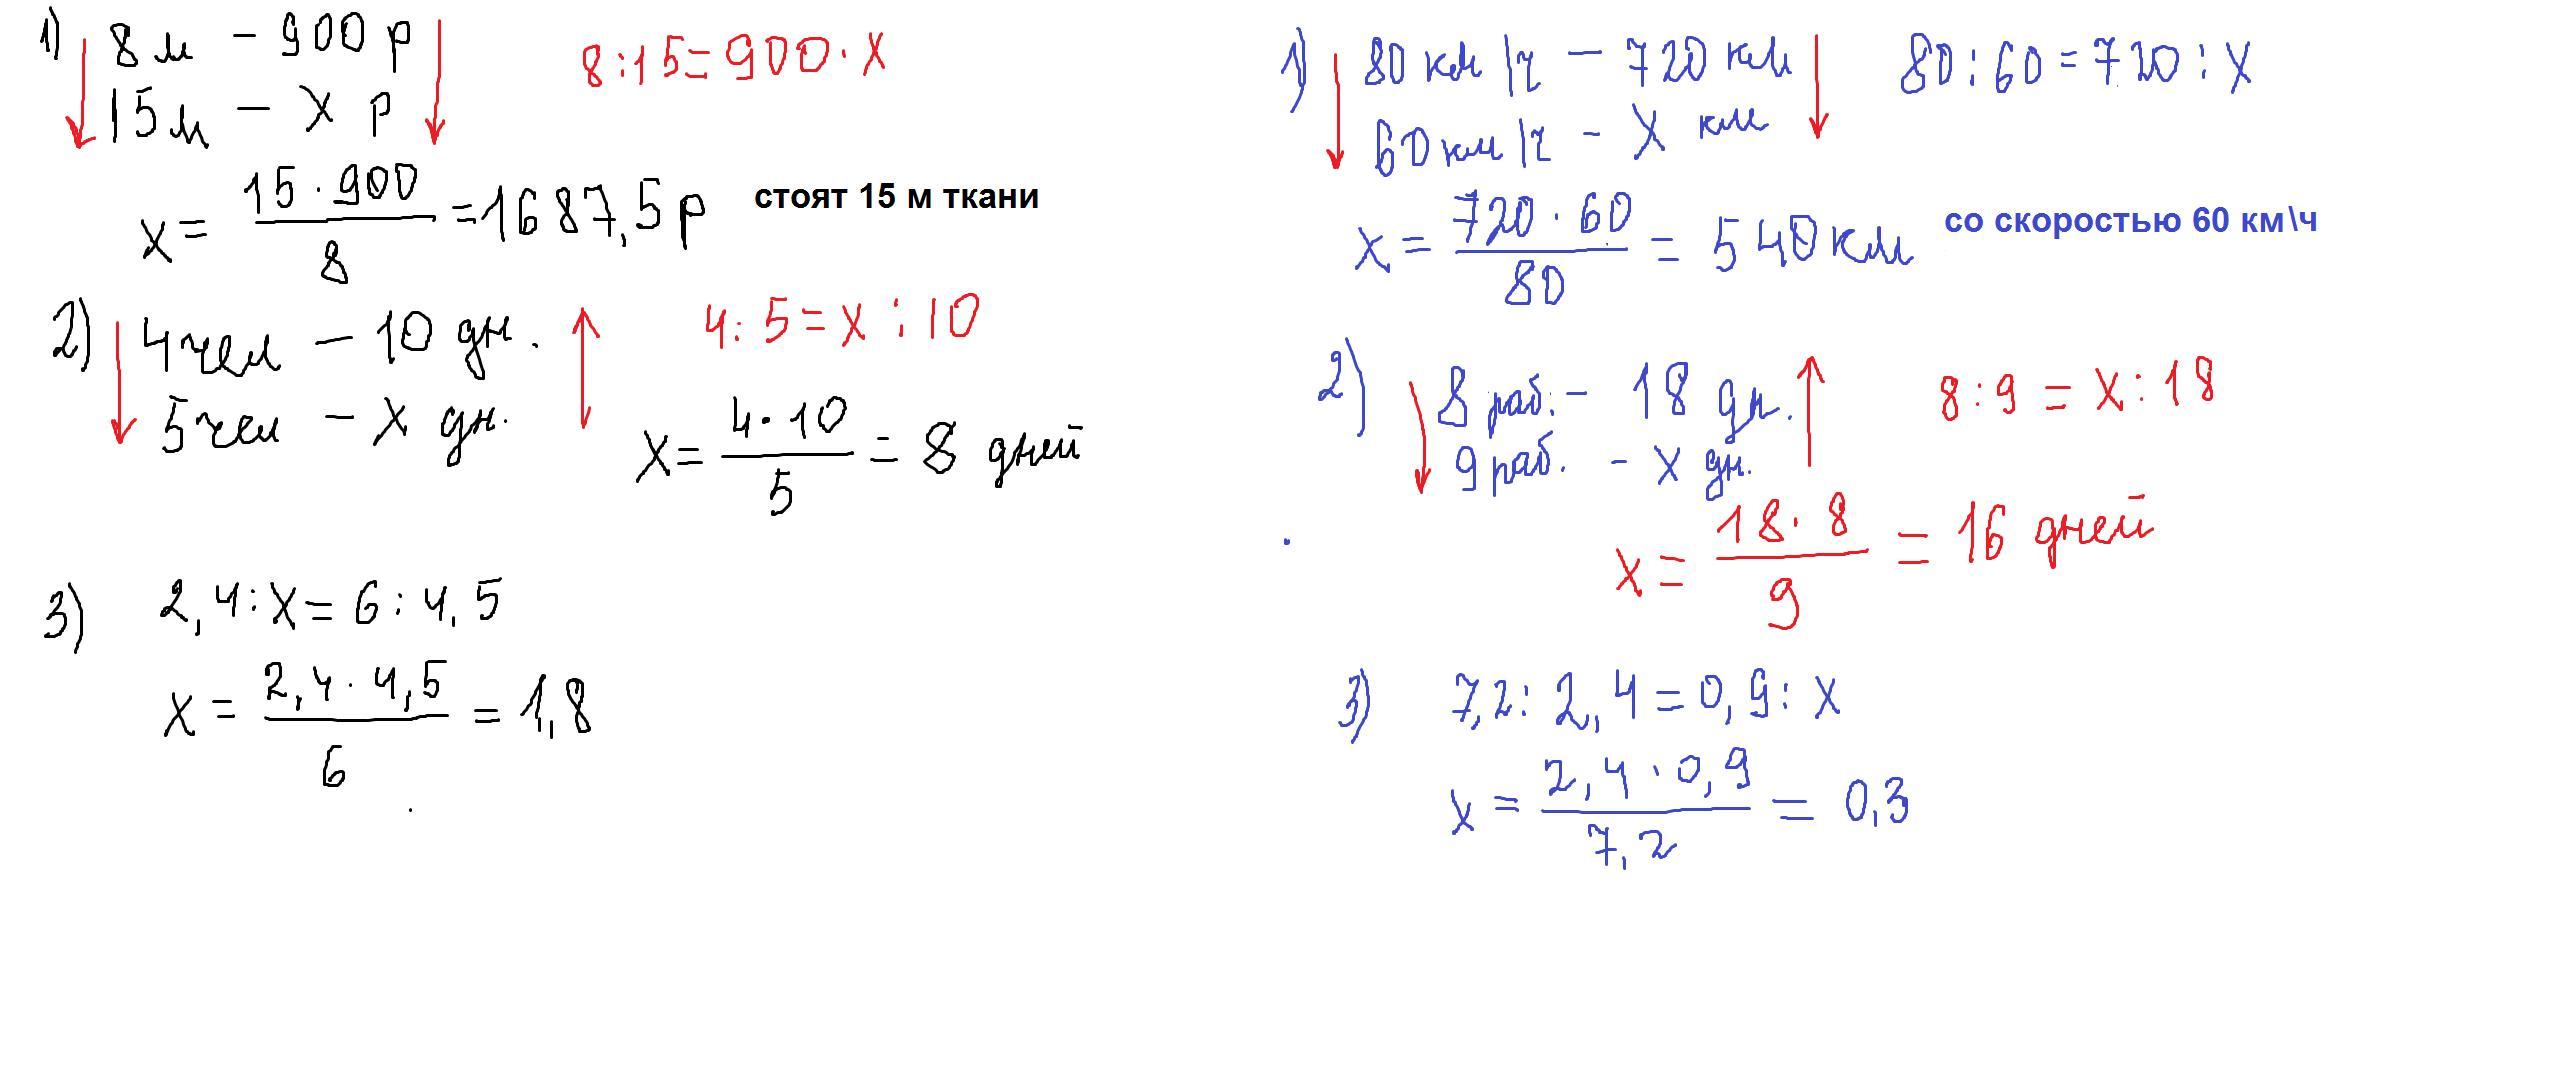 1) 8 м - 900 р 8 : 15 = 900 · x
15 м - x р
x = 15 · 900 / 8 = 1687,5 р стоят 15 м ткани
2) 4 чел - 10 дн. 4 : 5 = x : 10
5 чел - x дн.
x = 4 · 10 / 5 = 8 дней
3) 2,4 : x = 6 : 4,5
x = 2,4 · 4,5 / 6 = 1,8
1) 80 км/ч - 720 км 80 : 60 = 720 : x
60 км/ч - x км
x = 720 · 60 / 80 = 540 км со скоростью 60 км\ч
2) 8 раб. - 18 дн. 8 : 9 = x : 18
9 раб. - x дн.
x = 18 · 8 / 9 = 16 дней
3) 7,2 : 2,4 = 0,9 : x
x = 2,4 · 0,9 / 7,2 = 0,3